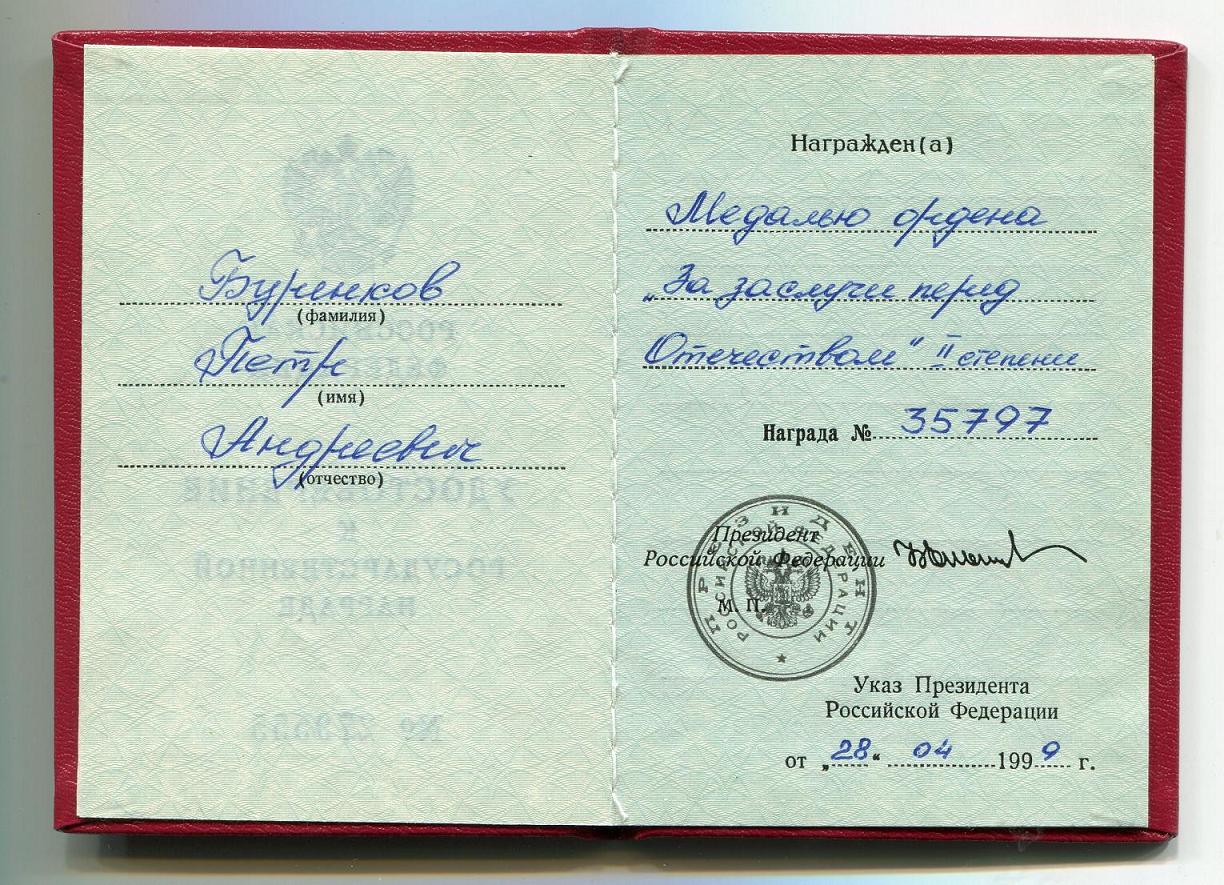 Буренков
(фамилия)
Петр
(имя)
Андреевич
(отчество)
Награжден(а)
Медалью ордена
„За заслуги перед
Отечеством" II степени
Награда № 35797
Президент
Российской Федерации
М. П.
ПРЕЗИДЕНТ
РОССИЙСКОЙ ФЕДЕРАЦИИ
Указ Президента
Российской Федерации
от „28" 04 1999 г.
РОССИЙСКАЯ
ФЕДЕРАЦИЯ
УДОСТОВЕРЕНИЕ
К
ГОСУДАРСТВЕННОЙ
НАГРАДЕ